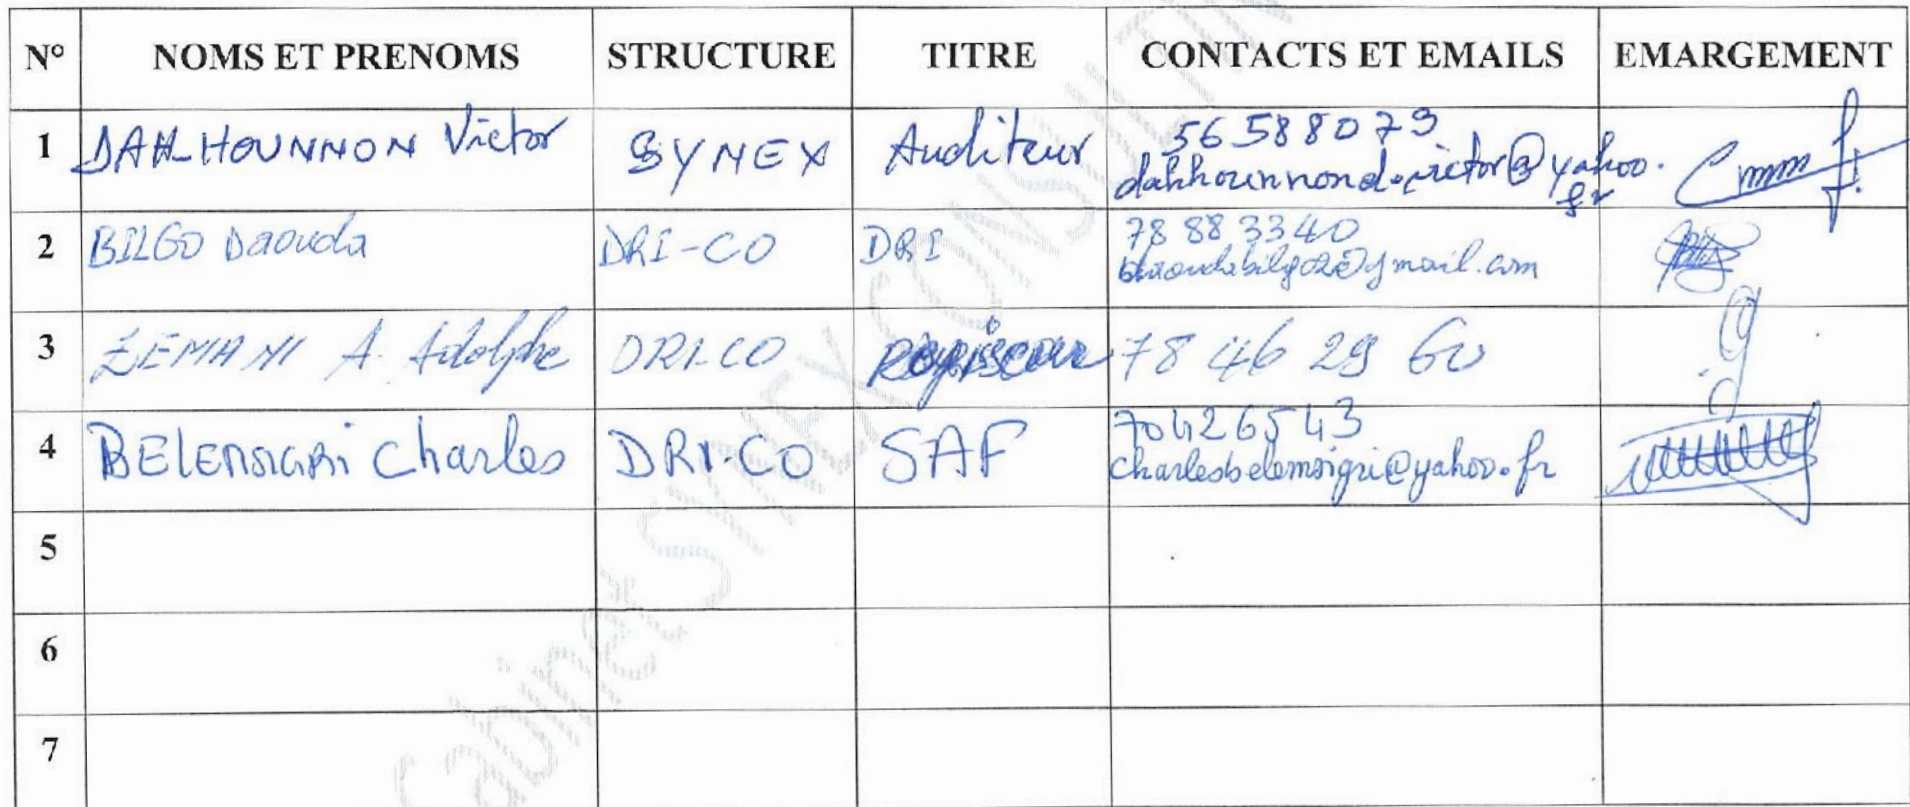 N° NOMS ET PRENOMS STRUCTURE TITRE CONTACTS ET EMAILS EMARGEMENT
1 DAH-HOUNNON Victor SYNEX Auditeur 56588079
dahhounnond.victor@yahoo.
fr
2 BILGO Daouda DRI-CO DRI 78 88 33 40
@gmail.com
3 ZEMANI A. Adolphe DRI-CO 78 46 29 60
4 BELEMSIGRI Charles DRI-CO SAF 70426543
charlesbelemsigri@yahoo.fr
5
6
7
Cabinet SYNEX CONSULTING